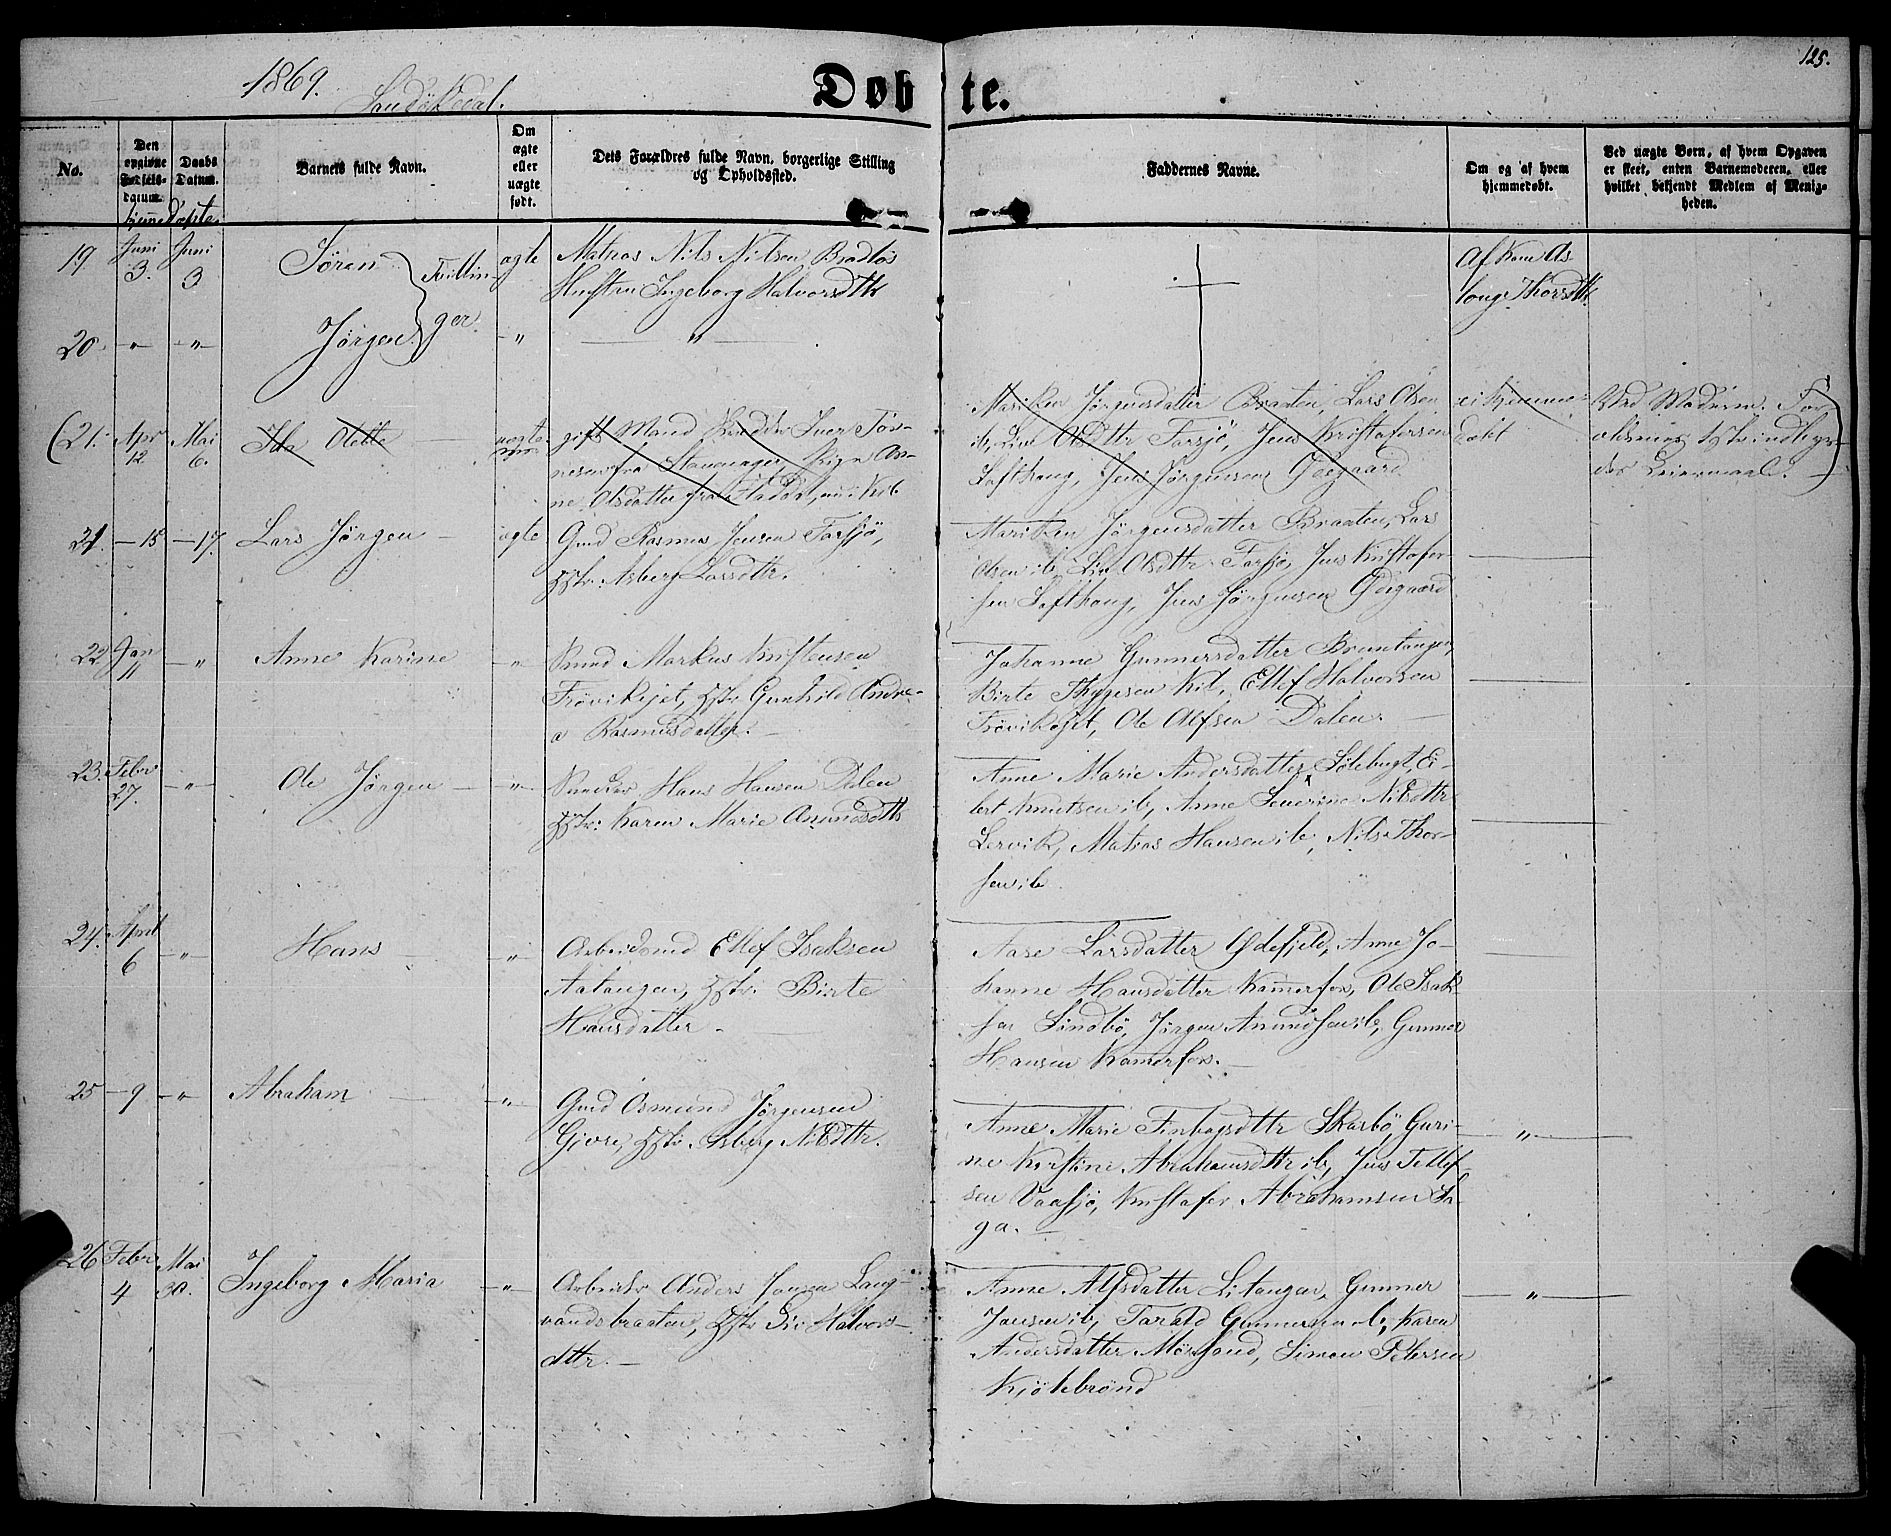 1869. Sandökedal.
Døbte.
125.
No.
Den opgivne Fødsels-datum.
Daabs Datum.
Barnets fulde Navn.
Om ægte eller uægte født.
Dets Forældres fulde Navn, borgerlige Stilling og Opholdssted.
Faddernes Navne.
Om og af hvem hjemmedøbt.
Ved uægte Børn, af hvem Opgaven er skeet, enten Barnemoderen, eller hvilket bekjendt Medlem af Menigheden.
hjemmedøpte.
19 Juni 3. Juni 3 Søren Tvillin- ægte
Matros Nils Nilsen Bradløs
Hustru Ingeborg Halvorsdtr
Af Kone As
loug Thorsdtr
20. " " Jørgen ger. " "
(21. Apr 12 Mai 6. Ida Olette uægte
gift Mand Iver Tør-
nesen fra Stavanger, Pige An-
ne Olsdatter fra
Mariken Jørgensdatter Braaten, Lars Olsen
ib, Liv Olsdtr Farsjø, Jens Kristofersen
Lofthaug, Jens Jørgensen Ødegaard
ei hjemme-
døbt
Ved Moderen. For
21. 15 17. Lars Jørgen ægte
Gmd Rasmus Jensen Farsjø,
Hstr. Asberg Larsdtr.
Mariken Jørgensdatter Braaten, Lars
Olsen ib, Liv Olsdtr Farsjø, Jens Kristofer-
sen Lofthaug, Jens Jørgensen Ødegaard
22 Jan 11 " Anne Karine "
Smed Markus Kristensen
Frøvikejet, Hstr Gunhild Andre-
a Rasmusdatter.
Johanne Gunnersdatter Bruntangen,
Birte Thygesen Kil, Ellef Halvorsen
Frøvikejet, Ole Alfsen Dalen.
23. Febr 27. " Ole Jørgen "
Snedker Hans Hansen Dalen
Hstr: Karen Marie Amundsdtr
Anne Marie Andersdatter Sølebugt, Ei-
lert Knutsen ib, Anne Severine Nilsdtr
Lervik, Matias Hansen ib, Nils Thor-
sen ib
24. April 6 " Hans "
Arbeidsmd Ellef Isaksen
Aatangen, Hstr: Birte
Hansdatter
Aase Larsdatter Ødefjeld, Anne Jo-
hanne Hansdatter Kamerfos, Ole Isak-
sen Lindbø, Jørgen Amundsen ib, Gunner
Hansen Kamerfos.
25 9 " Abraham "
Gmd Osmund Jørgensen
Gjerre, Hstr Asberg Nilsdtr.
Anne Marie Finboysdtr Skarbø, Guri-
ne Kirstine Abrahamsdtr ib, Jens Tellef-
sen Vaasjø, Kristofer Abrahamsen Sa-
ga.
"
26 Febr 4 Mai 30. Ingeborg Maria "
Arbeider Anders Jensen Lang-
vandsbraaten, Hstr Liv Halvors-
dttr.
Anne Alfsdatter Litangen, Gunner
Jensen ib, Tarald Gunnersen ib, Karen
Andersdatter Mörland, Simon Petersen
Kjölebrönd
"